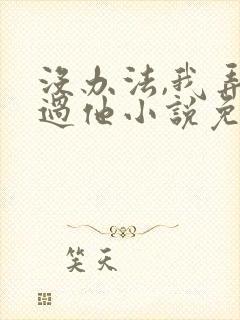 没办法,我弄
过他小说免
笑天